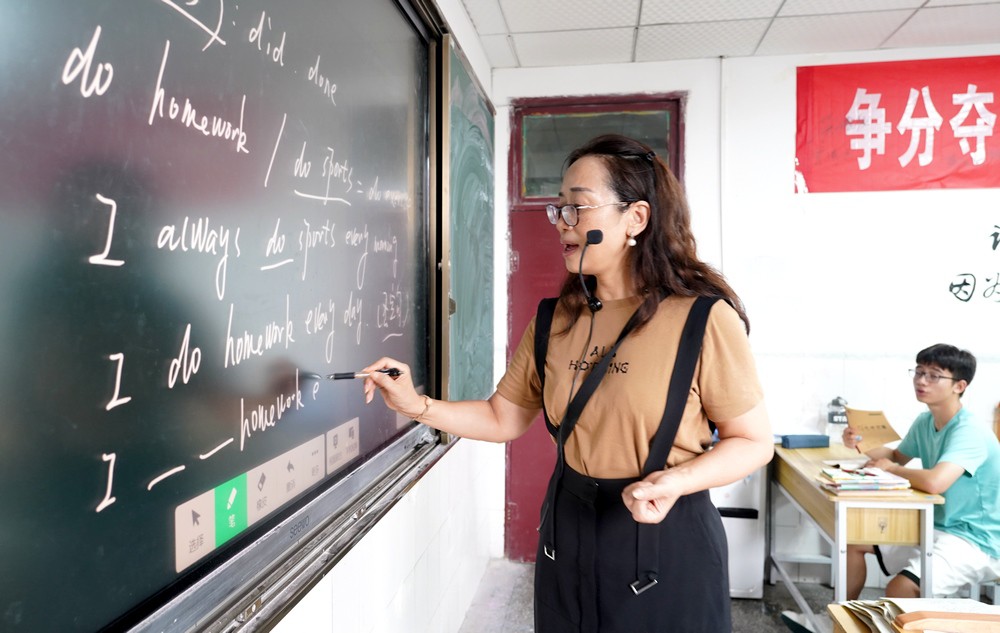 : did. done
do homework / do sports =
I always do sports every morning
I do homework every day.
I _ _ homework e
选择
笔
seewo
ALL
NOTHING
争分夺
因为